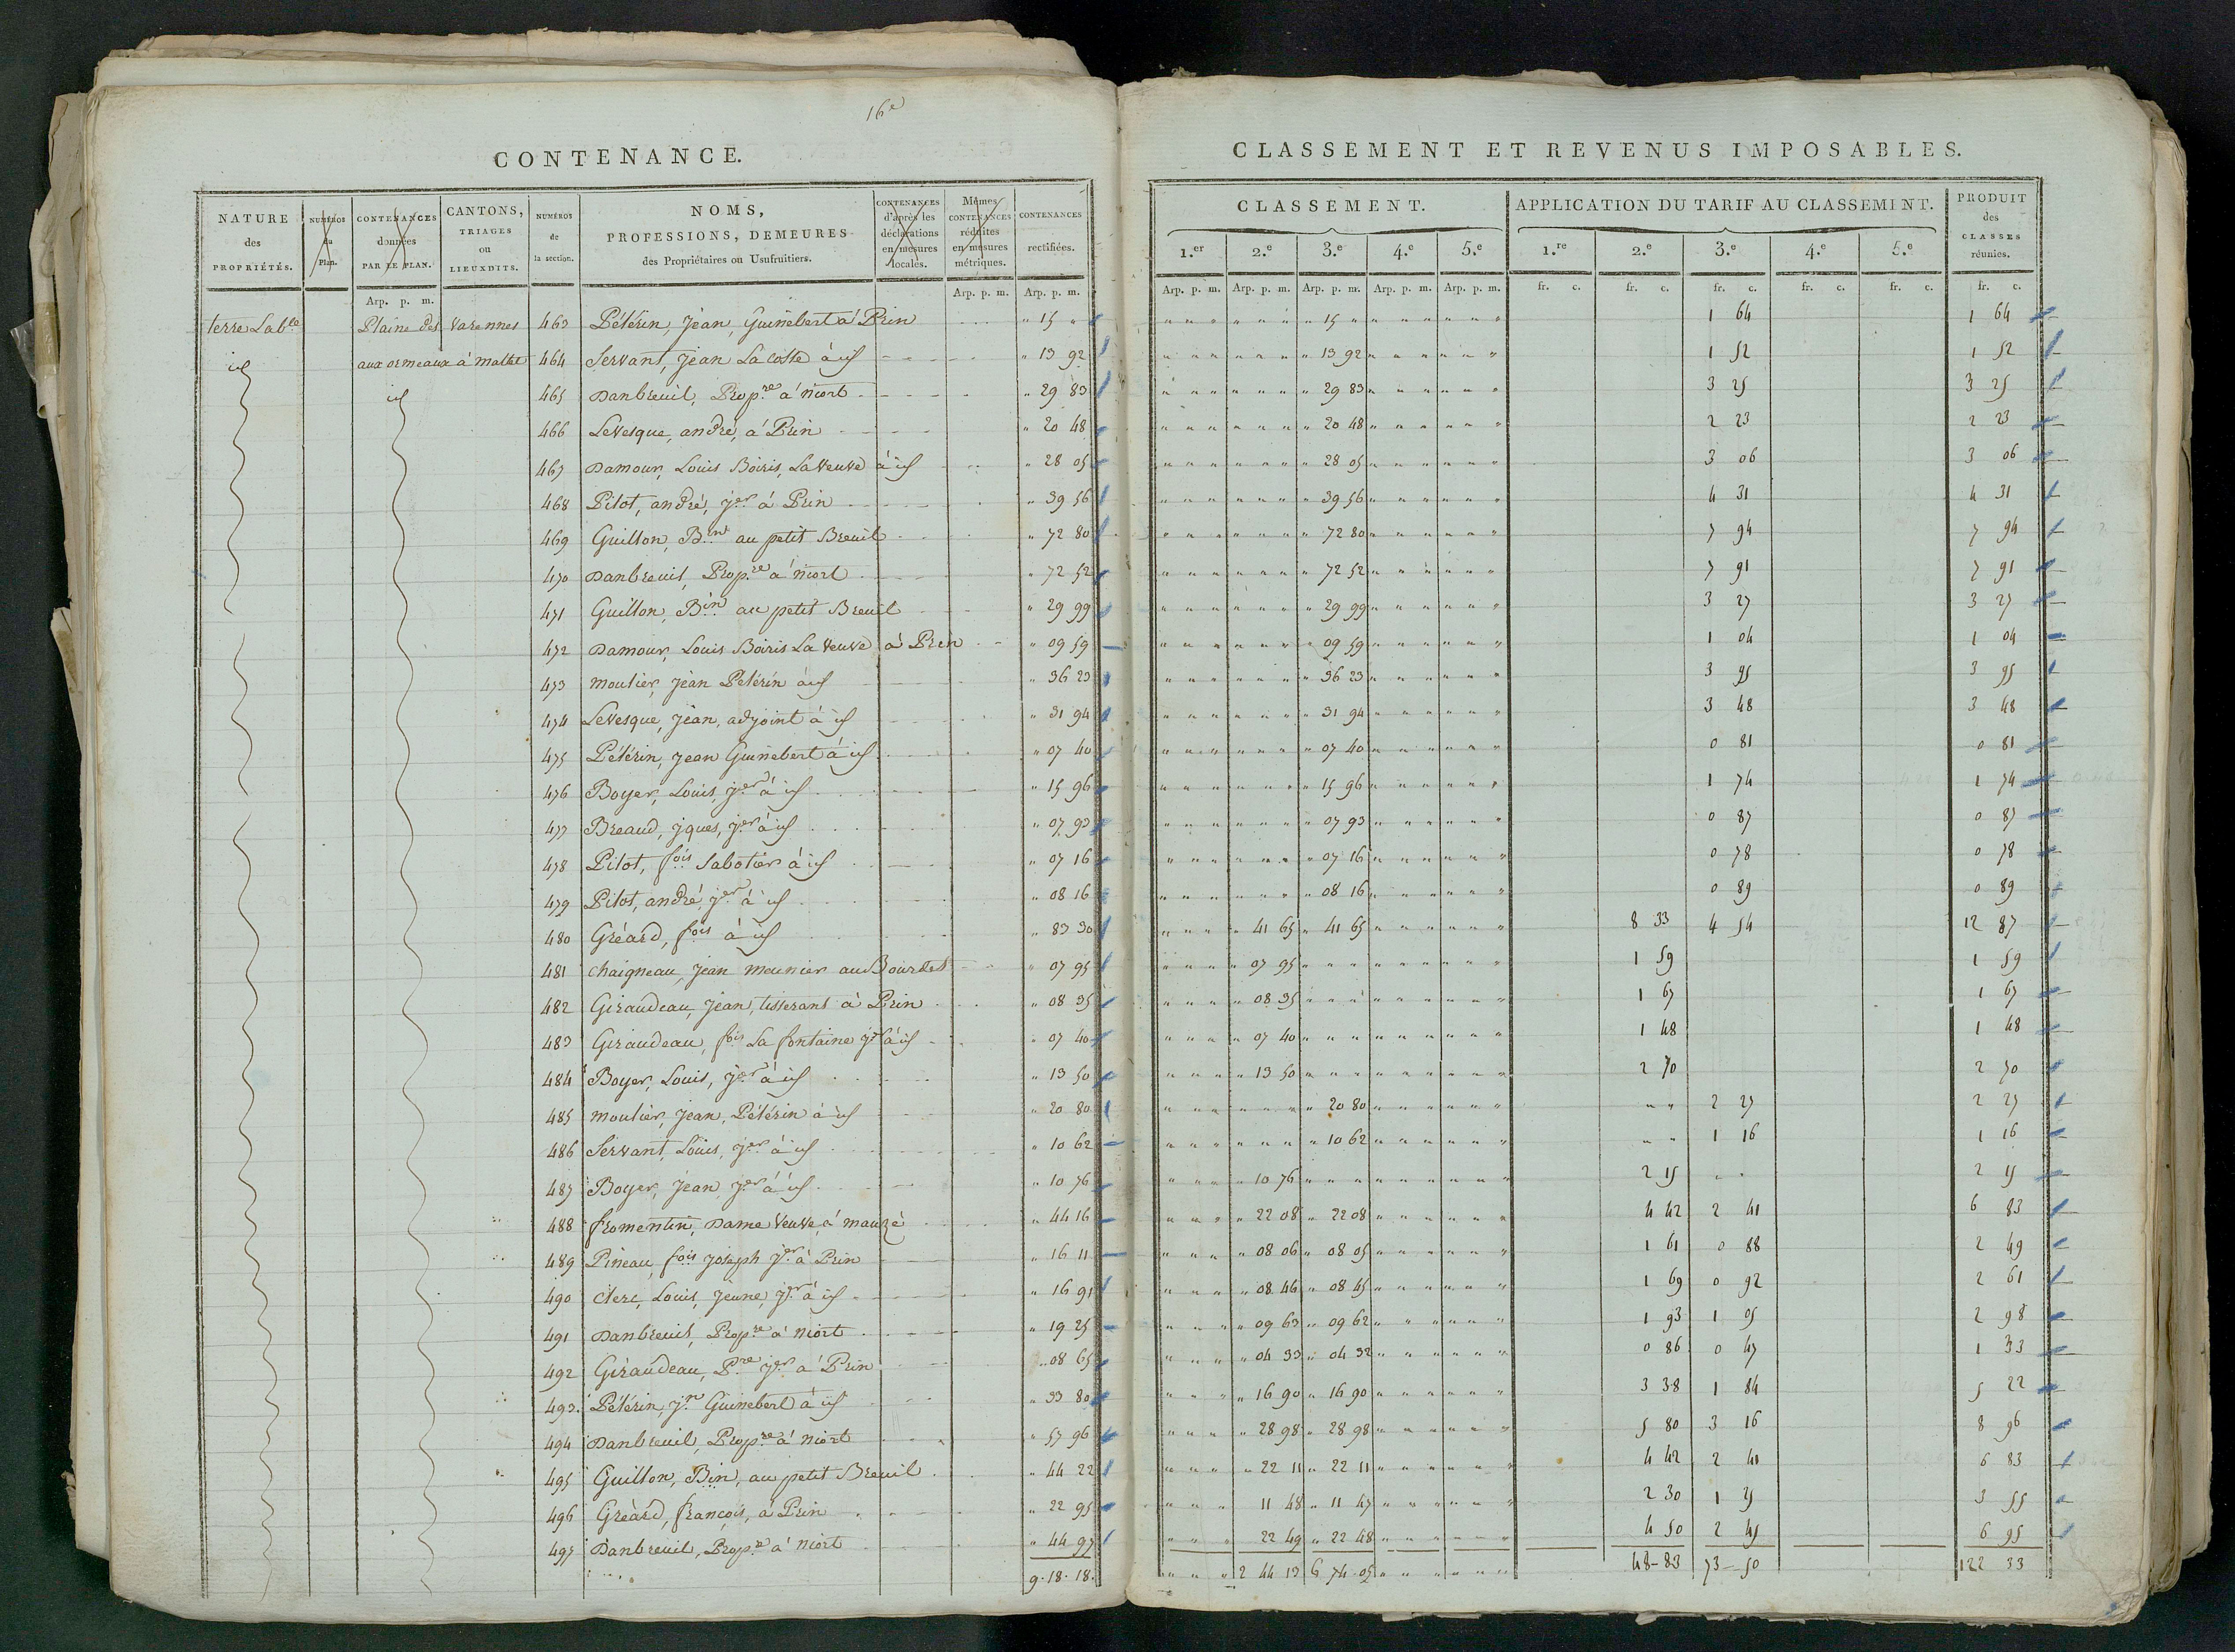 16e
CONTENANCE.
NATURE des PROPRIÉTÉS. | NUMÉROS du Plan. | CONTENANCES données PAR LE PLAN. | CANTONS, TRIAGES ou LIEUXDITS. | NUMÉROS de la section. | NOMS, PROFESSIONS, DEMEURES des Propriétaires ou Usufruitiers. | CONTENANCES d'après les déclarations en mesures locales. | Mêmes CONTENANCES réduites en mesures métriques. | CONTENANCES rectifiées.
Arp. p. m. | Arp. p. m. | Arp. p. m.
terre Lab.le Plaine des Varennes 463 Pétérin, Jean, Guinebert à Prin " 15 "
id aux ormeaux à Mallet 464 Servant, Jean La Cotte à id " 13 92
id 465 Danbreuil, Prop.re à Niort " 29 83
466 Levesque, andré, à Prin " 20 48
467 Damour, Louis Boiris, La Veuve à id " 28 05
468 Pilot, andré, j.er à Prin " 39 56
469 Guillon, B.in au petit Breuil " 72 80
470 Danbreuil, Prop.re à Niort " 72 52
471 Guillon, B.in au petit Breuil " 29 99
472 Damour, Louis Boiris La Veuve à Prin " 09 59
473 Moulier, Jean Petérin à id " 36 23
474 Levesque, Jean, adjoint à id " 31 94
475 Pétérin, Jean Guinebert à id " 07 40
476 Boyer, Louis, j.er à id " 15 96
477 Breaud, jques, j.er à id " 07 93
478 Pilot, f.ois Sabotier à id " 07 16
479 Pilot, andré, j.er à id " 08 16
480 Gréard, f.ois à id " 83 30
481 Chaigneau, Jean meunier au Bourdet " 07 95
482 Giraudeau, Jean, tisserant à Prin " 08 35
483 Giraudeau, f.ois La fontaine j.er à id " 07 40
484 Boyer, Louis, j.er à id " 13 50
485 Moulier, Jean, Pétérin à id " 20 80
486 Servant, Louis, j.er à id " 10 62
487 Boyer, Jean j.er à id " 10 76
488 fromentin, Dame Veuve, à mauzé " 44 16
489 Pineau, f.ois joseph j.er à Prin " 16 11
490 Clerc, Louis, jeune, j.er à id " 16 91
491 Danbreuil, Prop.re à Niort " 19 25
492 Giraudeau, P.re j.er à Prin " 08 65
493. Pétérin, j.n Guinebert à id " 33 80
494 Danbreuil, Prop.re à Niort " 57 96
495 Guillon, Bin, au petit Breuil " 44 22
496 Gréard, françois, à Prin " 22 95
497 Danbreuil, Prop.re à Niort " 44 97
9.18.18.
CLASSEMENT ET REVENUS IMPOSABLES.
CLASSEMENT. | APPLICATION DU TARIF AU CLASSEMENT. | PRODUIT des CLASSES réunies.
1.er | 2.e | 3.e | 4.e | 5.e | 1.re | 2.e | 3.e | 4.e | 5.e
Arp. p. m. | Arp. p. m. | Arp. p. m. | Arp. p. m. | Arp. p. m. | fr. c. | fr. c. | fr. c. | fr. c. | fr. c. | fr. c.
" 15 " | 1 64 | 1 64
" 13 92 | 1 52 | 1 52
" 29 83 | 3 25 | 3 25
" 20 48 | 2 23 | 2 23
" 28 05 | 3 06 | 3 06
" 39 56 | 4 31 | 4 31
" 72 80 | 7 94 | 7 94
" 72 52 | 7 91 | 7 91
" 29 99 | 3 27 | 3 27
" 09 59 | 1 04 | 1 04
" 36 23 | 3 95 | 3 95
" 31 94 | 3 48 | 3 48
" 07 40 | 0 81 | 0 81
" 15 96 | 1 74 | 1 74
" 07 93 | 0 87 | 0 87
" 07 16 | 0 78 | 0 78
" 08 16 | 0 89 | 0 89
" 41 65 | " 41 65 | 8 33 | 4 54 | 12 87
" 07 95 | 1 59 | 1 59
" 08 35 | 1 67 | 1 67
" 07 40 | 1 48 | 1 48
" 13 50 | 2 70 | 2 70
" 20 80 | " " | 2 27 | 2 27
" 10 62 | " " | 1 16 | 1 16
" 10 76 | 2 15 | " " | 2 15
" 22 08 | " 22 08 | 4 42 | 2 41 | 6 83
" 08 06 | " 08 05 | 1 61 | 0 88 | 2 49
" 08 46 | " 08 45 | 1 69 | 0 92 | 2 61
" 09 63 | " 09 62 | 1 93 | 1 05 | 2 98
" 04 33 | " 04 32 | 0 86 | 0 47 | 1 33
" 16 90 | " 16 90 | 3 38 | 1 84 | 5 22
" 28 98 | " 28 98 | 5 80 | 3 16 | 8 96
" 22 11 | " 22 11 | 4 42 | 2 41 | 6 83
11 48 | " 11 47 | 2 30 | 1 25 | 3 55
22 49 | " 22 48 | 4 50 | 2 45 | 6 95
2 44 13 | 6 74.05 | 48-83 | 73-50 | 122 33